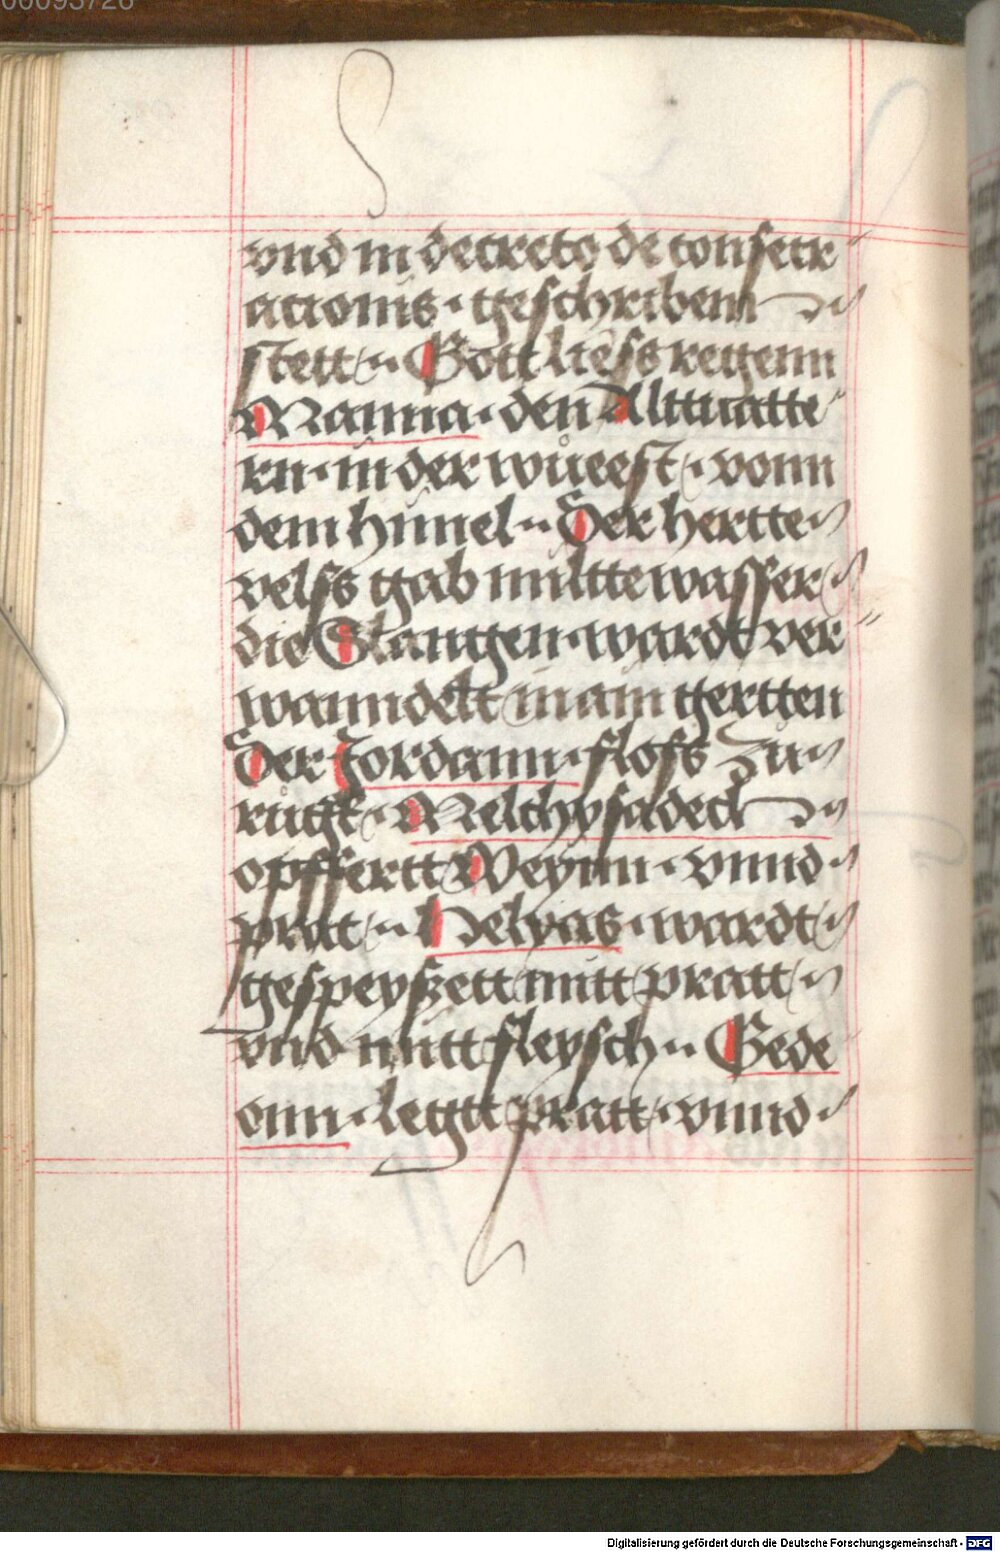 00093726
vnd in decreto de consecr
acionis · geschribenn
stett ·· Gott liess regenn
Manna · den Alttuatte
rn · in der wüeest · vonn
dem himel ·· Der hertte
velss gab miltte wasser
die Slanngen · wardt ver
wanndelt in ain gertten
Der Jordann · floss zu
rugk · Melchysadech
opffertt Weynn · vnnd
prat ·· Helyas · wardt
gespeyszett mitt pratt
vnd mitt fleysch ·· Gede
onn · legtt pratt · vnnd
Digitalisierung gefördert durch die Deutsche Forschungsgemeinschaft - DFG